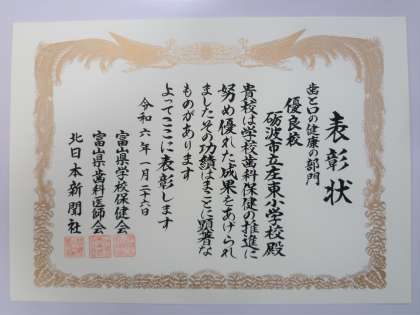 表彰状
歯と口の健康の部門
優良校
砺波市立庄東小学校殿
貴校は学校歯科保健の推進に
努め優れた成果をあげられ
ましたその功績はまことに顕著な
ものがあります
よってここに表彰します
令和六年一月二十六日
富山県学校保健会
富山県歯科医師会
北日本新聞社